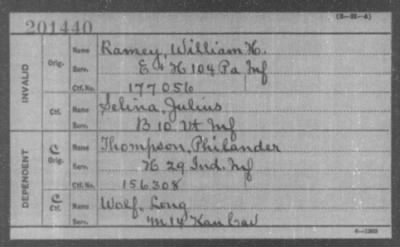 (3-H-A)
201440
INVALID
Orig.
Name Ramey, William H.
Serv. E + H 104 Pa Inf
Ctf. No. 177056
Ctf.
Name Selina, Julius
Serv. B 10 Vt Inf
DEPENDENT
C
Orig.
Name Thompson, Philander
Serv. H 29 Ind. Inf
Ctf. No. 156308
C
Ctf.
Name Wolf, Long
Serv. M 14 Kan Cav